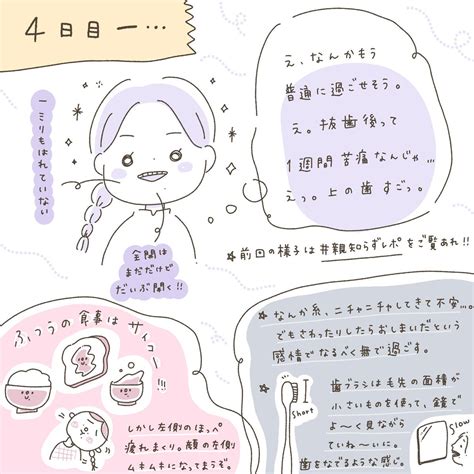 4日目ー…
一ミリもはれていない
え、なんかもう
普通に過ごせそう。
え。抜歯後って
1週間苦痛なんじゃ…
えっ。上の歯すごっ。
全開は
まだだけど
だいぶ開く!!
★前回の様子は#親知らずレポをご覧あれ!!
ふつうの食事はサイコー
しかし左側のほっぺ
疲れまくり。顔の左側
ムキムキになってまうぞ。
★なんか糸、ニチャニチャしてきて不安…。
でもさわったりしたらおしまいだという
感情でなるべく無で過ごす。
★歯ブラシは毛先の面積が
小さいものを使って、鏡で
よ〜く見ながら
ていね〜いに。
歯をなでるような感じ。
Short
Slow